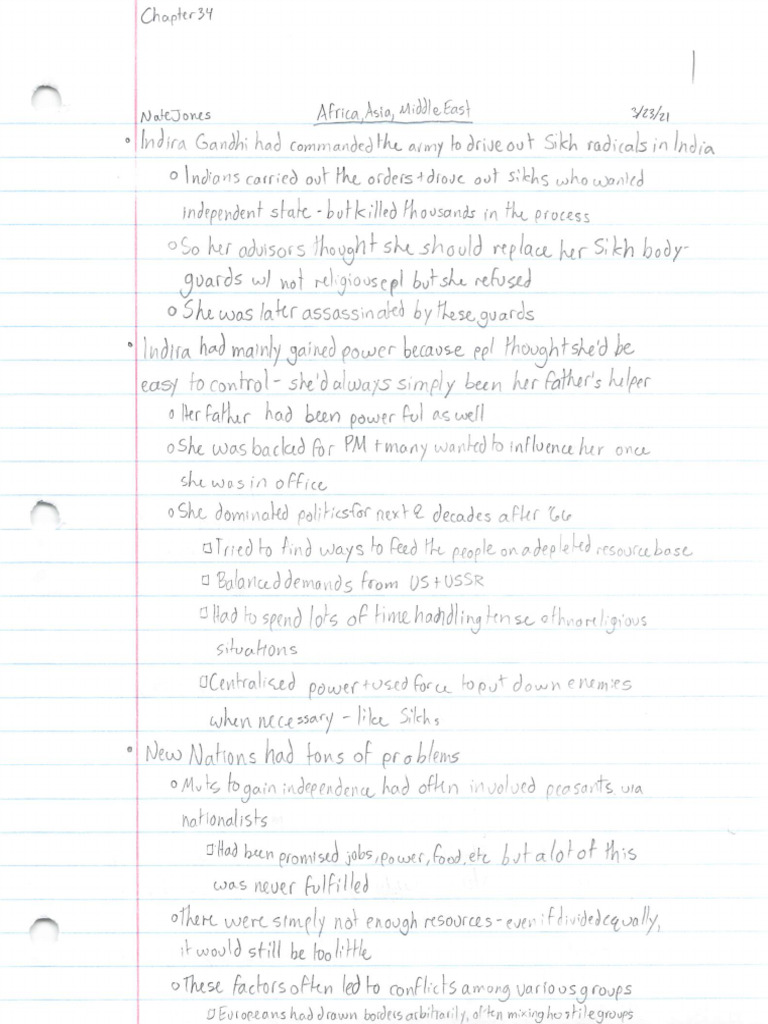 Chapter 34
1
Nate Jones Africa, Asia, Middle East 3/23/21
• Indira Gandhi had commanded the army to drive out Sikh radicals in India
o Indians carried out the orders + drove out sikhs who wanted
independent state - but killed thousands in the process
o So her advisors thought she should replace her Sikh body-
guards w/ not religious ppl but she refused
o She was later assassinated by these guards
• Indira had mainly gained power because ppl thought she'd be
easy to control - she'd always simply been her father's helper
o Her father had been powerful as well
o She was backed for PM + many wanted to influence her once
she was in office
o She dominated politics for next 2 decades after '66
□ Tried to find ways to feed the people on a depleted resource base
□ Balanced demands from US + USSR
□ Had to spend lots of time handling tense ethnoreligious
situations
□ Centralised power + used force to put down enemies
when necessary - like Sikhs
• New Nations had tons of problems
o Mvts to gain independence had often involved peasants via
nationalists
□ Had been promised jobs, power, food, etc but a lot of this
was never fulfilled
o There were simply not enough resources - even if divided equally,
it would still be too little
o These factors often led to conflicts among various groups
□ Europeans had drawn borders arbitrarily, often mixing hostile groups